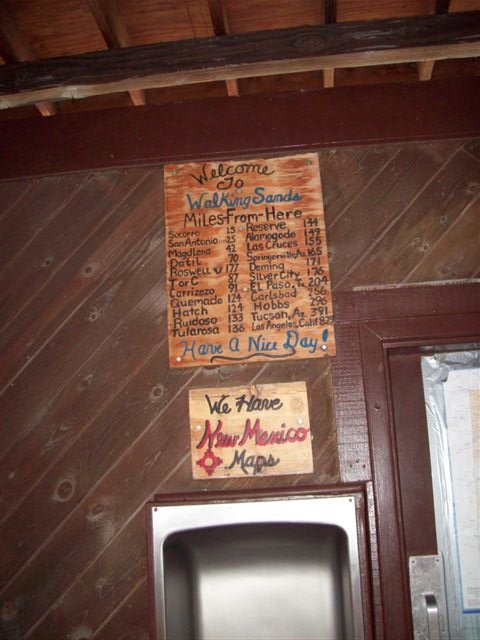 Welcome
To
Walking Sands
Miles-From-Here
Socorro 15
San Antonio 25
Magdlena 42
Datil 70
Roswell 177
T or C 87
Carrizozo 91
Quemado 124
Hatch 124
Ruidoso 133
Tularosa 136
Reserve 144
Alamogodo 149
Las Cruces 155
Springerville, Az 165
Deming 171
Silver City 176
El Paso, Tx 204
Carlsbad 256
Hobbs 296
Tucson, Az 391
Los Angeles, Calif 829
Have A Nice Day!
We Have
New Mexico
Maps